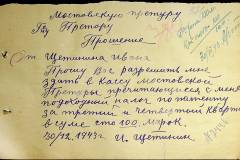 Мостовскую претуру
Гну Претору
Прошение
от Щетинина Ивана
Прошу Вас разрешить мне
здать в кассу мостовской
Претуры причитающийся с меня
подоходний налог по патенту
за третий и четвертий квартал
в сумме сто 100 марок
30/12.1943 г. И. Щетинин